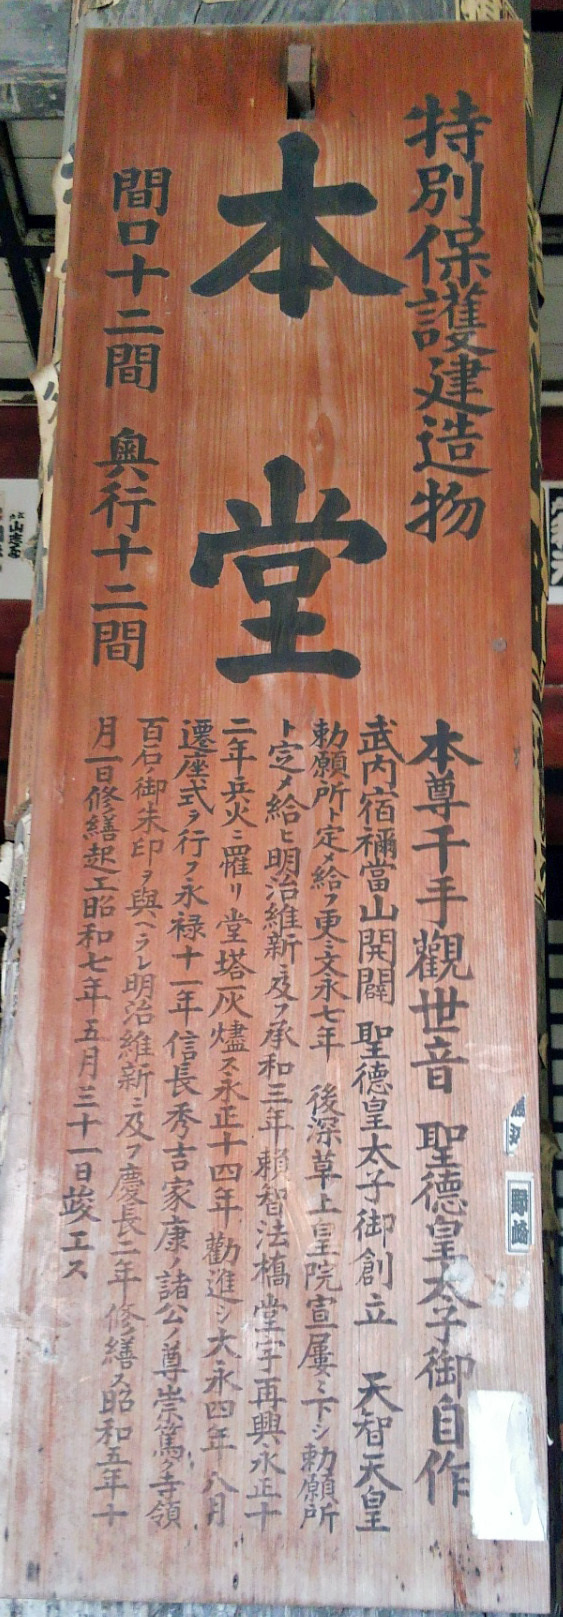 特別保護建造物
本堂
間口十二間 奥行十二間
本尊千手觀世音 聖德皇太子御自作
武内宿禰當山開闢 聖德皇太子御創立 天智天皇
勅願所ト定メ給フ更ニ文永七年 後深草上皇院宣屢〻下シ勅願所
ト定メ給ヒ明治維新ニ及フ承和三年賴智法橋堂宇再興永正十
二年兵火ニ罹リ堂塔灰燼ス永正十四年勸進シ大永四年八月
遷座式ヲ行フ永禄十一年信長秀吉家康ノ諸公ノ尊崇篤ク寺領
百石ノ御朱印ヲ與ヘラレ明治維新ニ及フ慶長二年修繕ス昭和五年十
月一日修繕起工昭和七年五月三十一日竣工ス